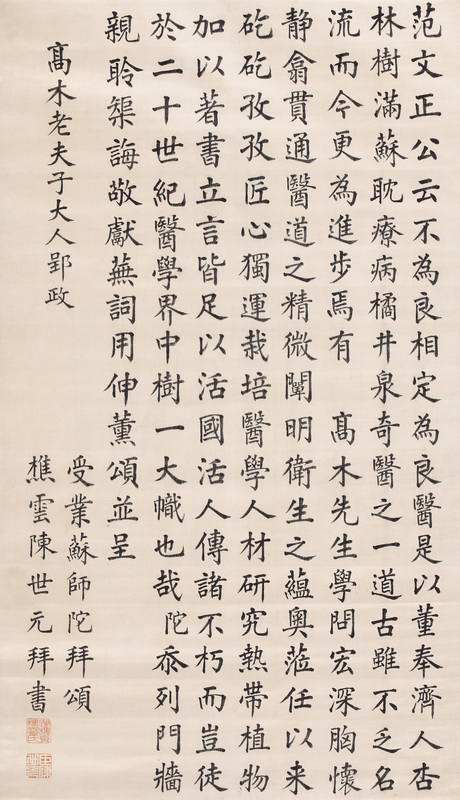 范文正公云不為良相定為良醫是以董奉濟人杏
林樹滿蘇耽療病橘井泉奇醫之一道古雖不乏名
流而今更為進步焉有　髙木先生學問宏深胸懷
静翕貫通醫道之精微闡明衛生之蘊奧蒞任以来
矻矻孜孜匠心獨運栽培醫學人材研究熱帶植物
加以著書立言皆足以活國活人傳諸不朽而豈徒
於二十世紀醫學界中樹一大幟也哉　陀忝列門牆
親聆榘誨敬獻蕪詞用伸薰頌並呈
髙木老夫子大人郢政
受業蘇師陀拜頌
樵雲陳世元拜書